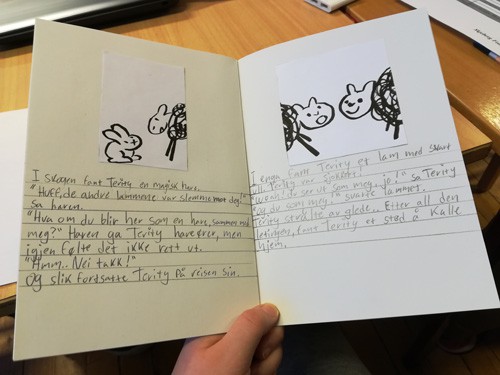 I skogen fant Tority en magisk hare.
"Huff, de andre lammene var slemme mot deg!"
sa haren.
"Hva om du blir her som en hare, sammen med
meg?" Haren ga Tority hareører, men
igjen følte det ikke rett ut.
"Hmm.. Nei takk!"
og slik fortsatte Tority på reisen sin.
I engen fant Tority et lam med svart
ull. Tority var
"Wow! Du ser ut som meg jo!" sa Tority
"Og du som meg." svarte lammet.
Tority strålte av glede. Etter all den
letingen, fant Tority et sted å kalle
hjem.